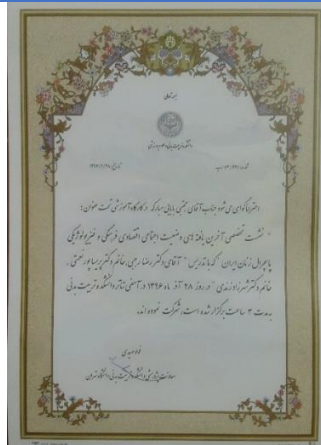 بسمه تعالی
دانشکده تربیت بدنی و علوم ورزشی
بدینوسیله گواهی می شود جناب آقای مجتبی بابایی مبارکه در کارگاه آموزشی تحت عنوان:
" نشست تخصصی آخرین یافته های وضعیت اجتماعی اقتصادی فرهنگی و فیزیولوژیکی
زنان ایران " که با تدریس " آقای دکتر رضا رجبی، خانم دکتر
خانم دکتر شهرزاد زندی " در روز ۲۸ آذر ماه ۱۳۹۶ در آمفی تئاتر دانشکده تربیت بدنی
به مدت ۳ ساعت برگزار شده است، شرکت نموده اند.
معاونت پژوهشی دانشکده تربیت بدنی دانشگاه تهران